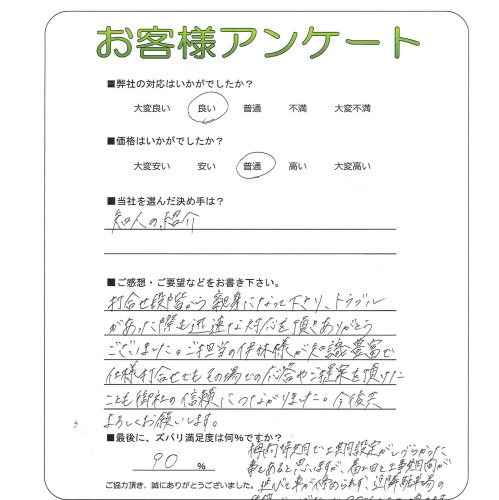 お客様アンケート
■弊社の対応はいかがでしたか？
大変良い 良い 普通 不満 大変不満
■価格はいかがでしたか？
大変安い 安い 普通 高い 大変高い
■当社を選んだ決め手は？
知人の紹介
■ご感想・ご要望などをお書き下さい。
打合せ段階から親身になって下さり、トラブル
があった際も迅速な対応を頂きありがとう
ございました。ご担当の伊林様が知識豊富で
仕様打合せでもその場での応答やご提案を頂けた
ことも御社の信頼につながりました。今後共
よろしくお願いします。
■最後に、ズバリ満足度は何%ですか？
90 %
梅雨時期で工期設定がしづらかった
事もあると思いますが、
ご協力頂き、誠にありがとうございました。